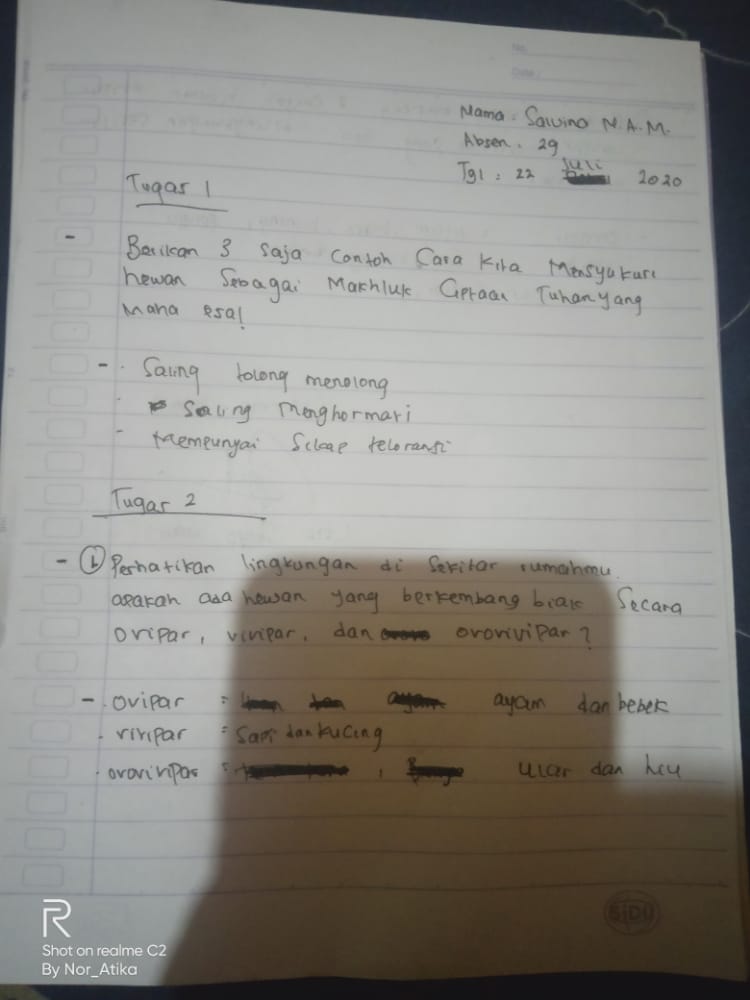 No.
Date:
Nama : Salvino N.A.M.
Absen : 29
Tgl : 22 Juli 2020
Tugas 1
- Berikan 3 saja contoh cara kita mensyukuri
hewan sebagai makhluk ciptaan Tuhan yang
maha esa!
- . Saling tolong menolong
Saling Menghormari
- Mempunyai sikap teloransi
Tugas 2
- 1. Perhatikan lingkungan di sekitar rumahmu.
apakah ada hewan yang berkembang biak secara
ovipar, vivipar, dan ovovivipar?
- . ovipar = ayam dan bebek
. vivipar = Sapi dan kucing
. ovovivipar = , Ular dan hiu
SiDU
R
Shot on realme C2
By Nor_Atika